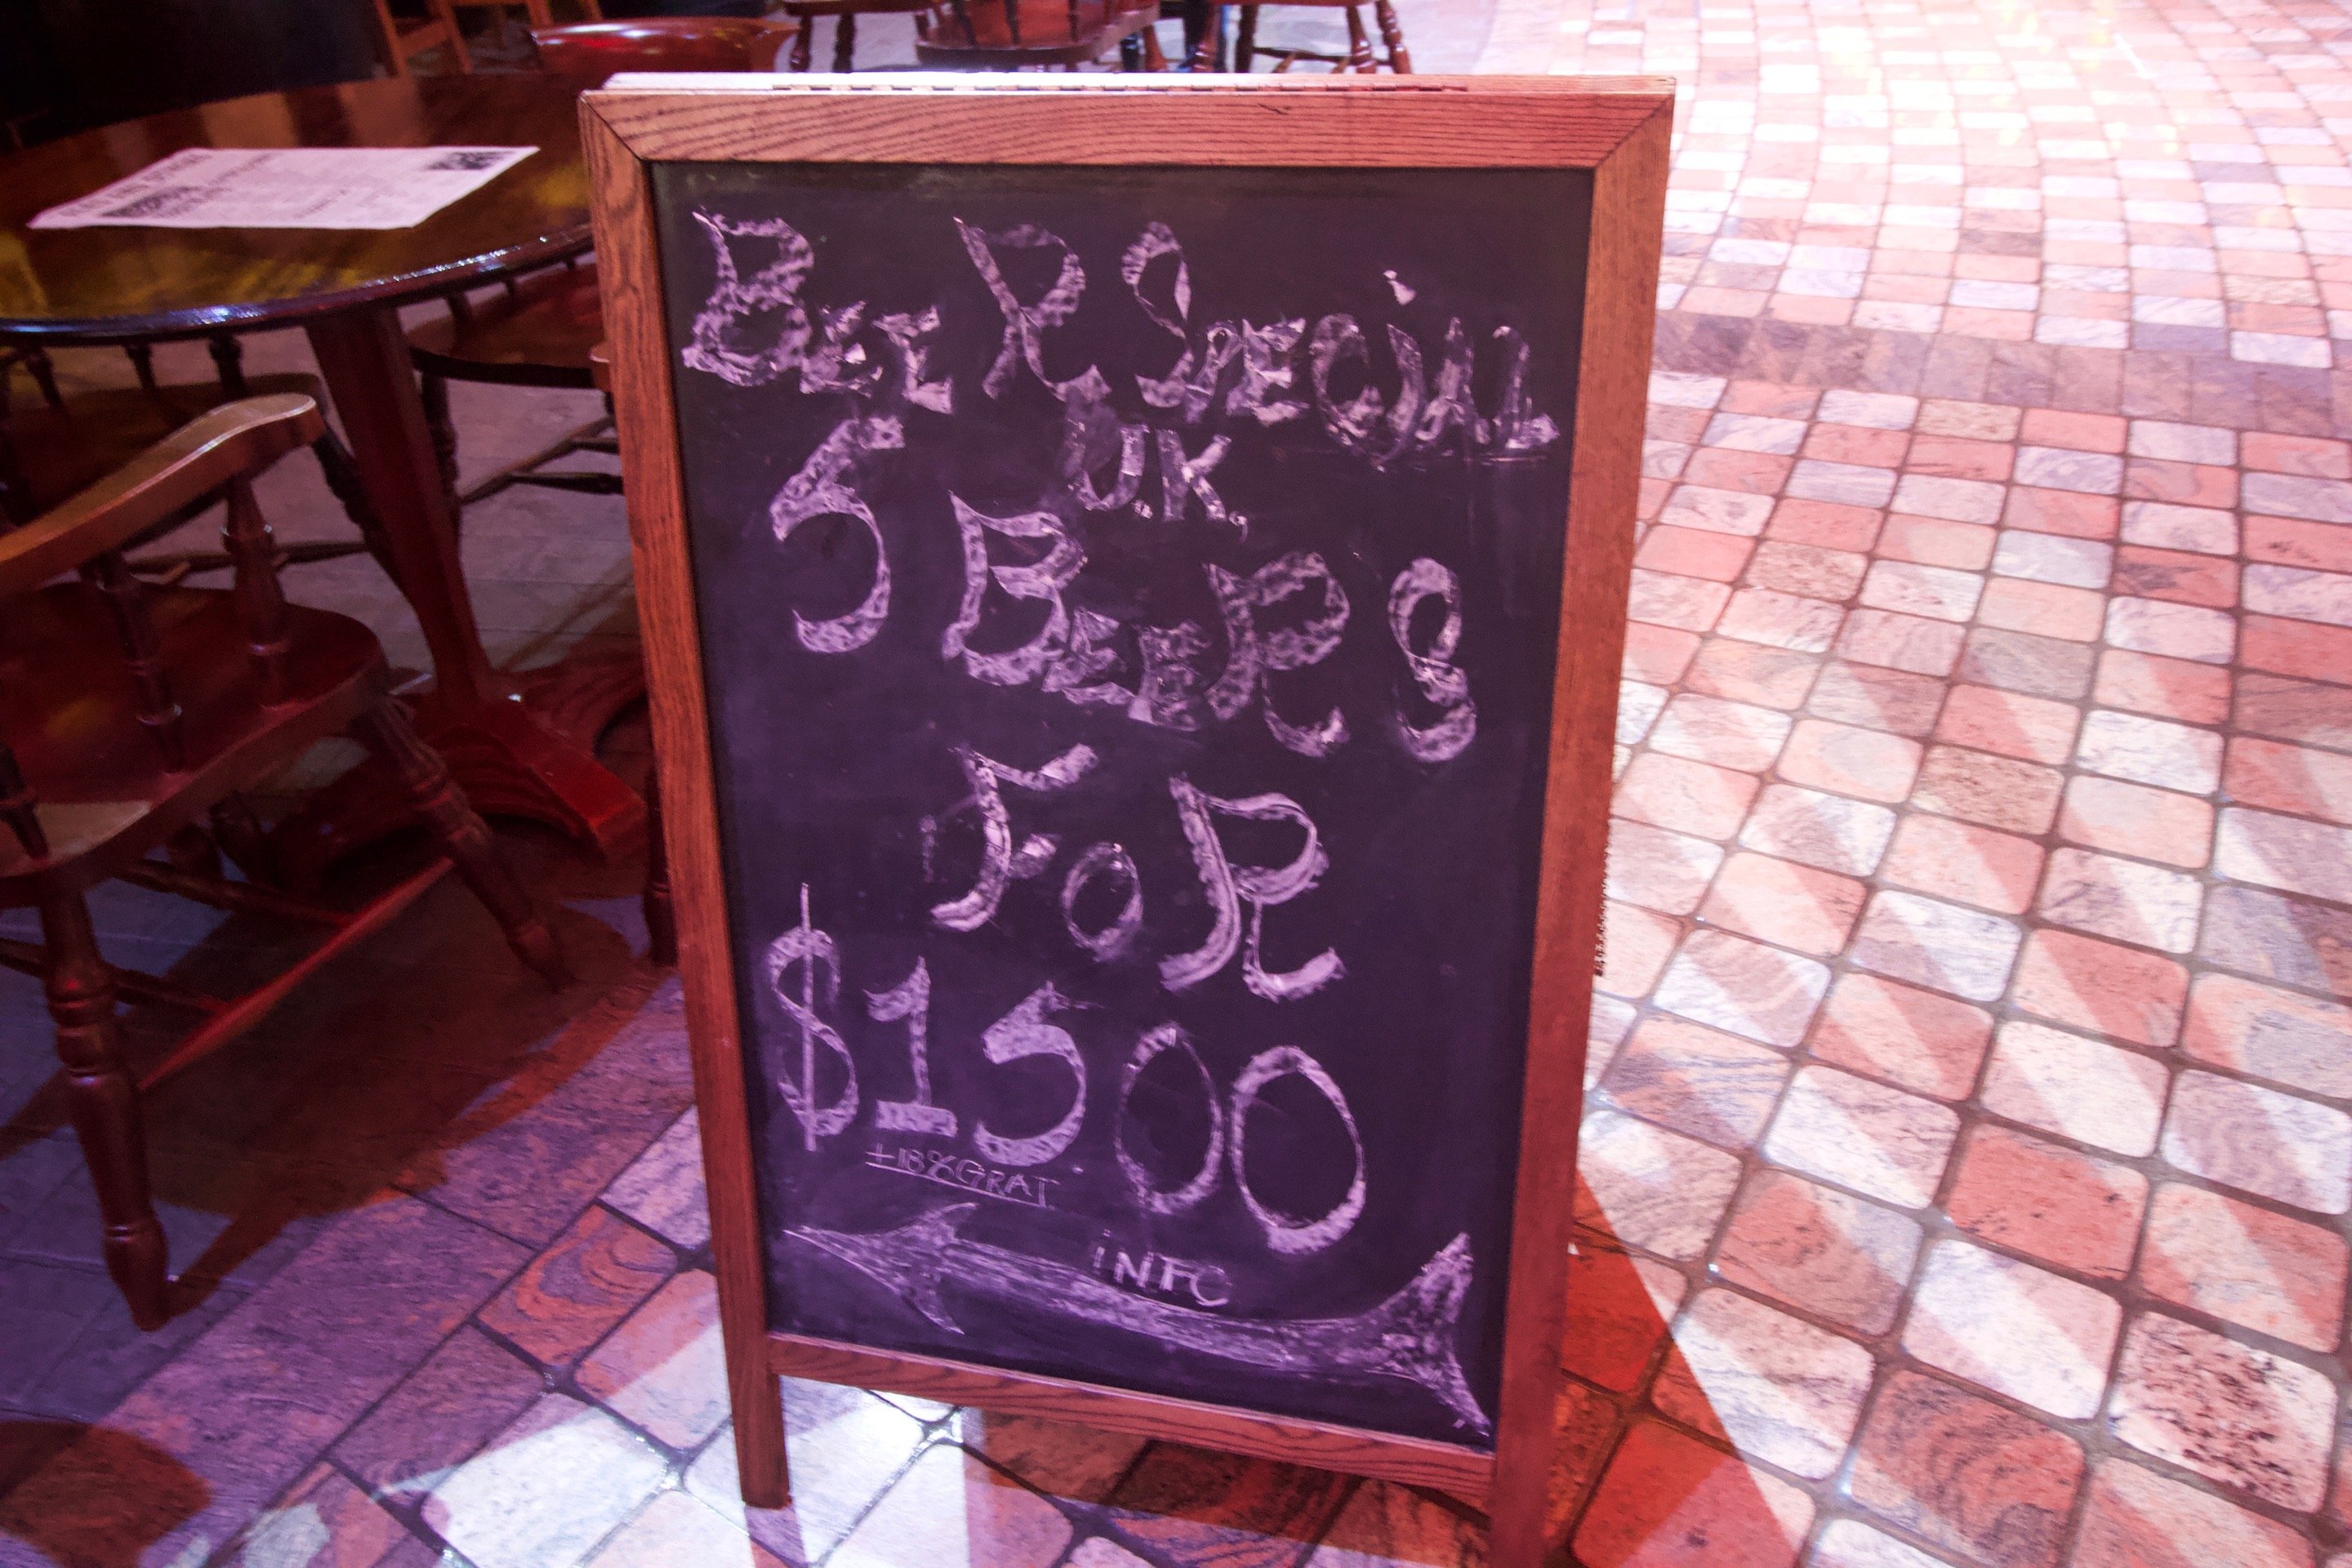 BEER SPECIAL
U.K.
5 BEERS
FOR
$15.00
+18% GRAT
INFO